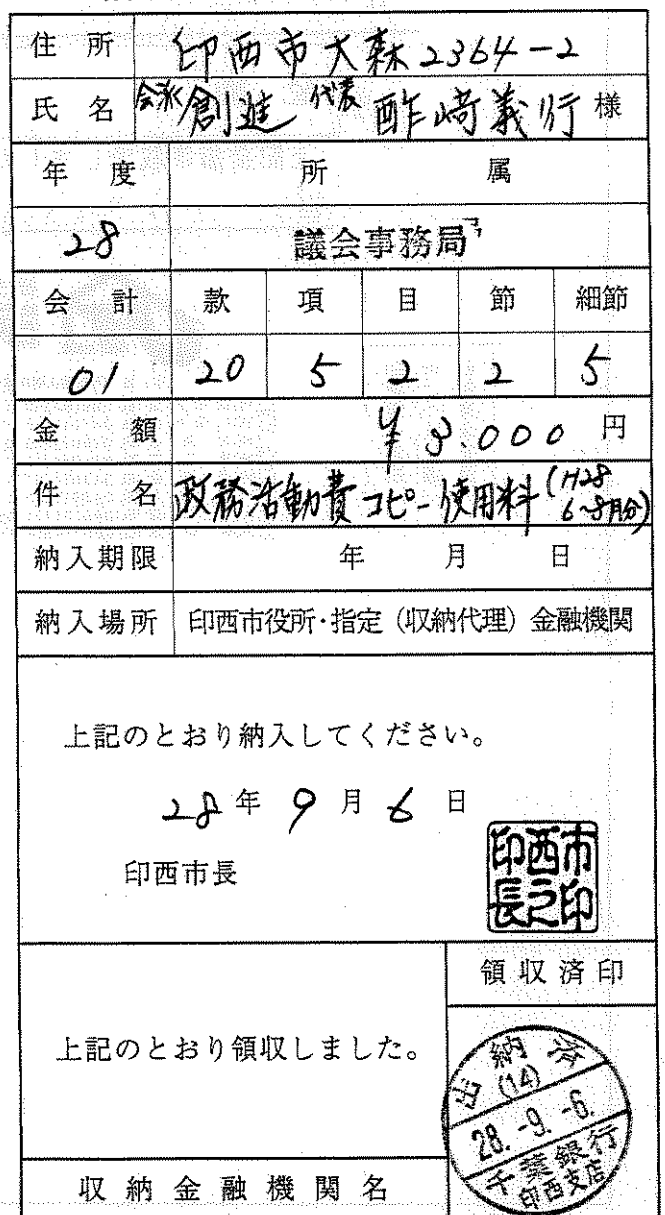 住所 印西市大森2364-2
氏名 会派 創進 代表 酢崎義行 様
年度 所属
28 議会事務局
会計 款 項 目 節 細節
01 20 5 2 2 5
金額 ¥3.000 円
件名 政務活動費 コピー使用料 (H28 6~8月分)
納入期限 年 月 日
納入場所 印西市役所・指定(収納代理)金融機関
上記のとおり納入してください。
28年 9月 6日
印西市長
印西市長之印
領収済印
上記のとおり領収しました。
出納済
(14)
28.-9.-6.
千葉銀行
印西支店
収納金融機関名